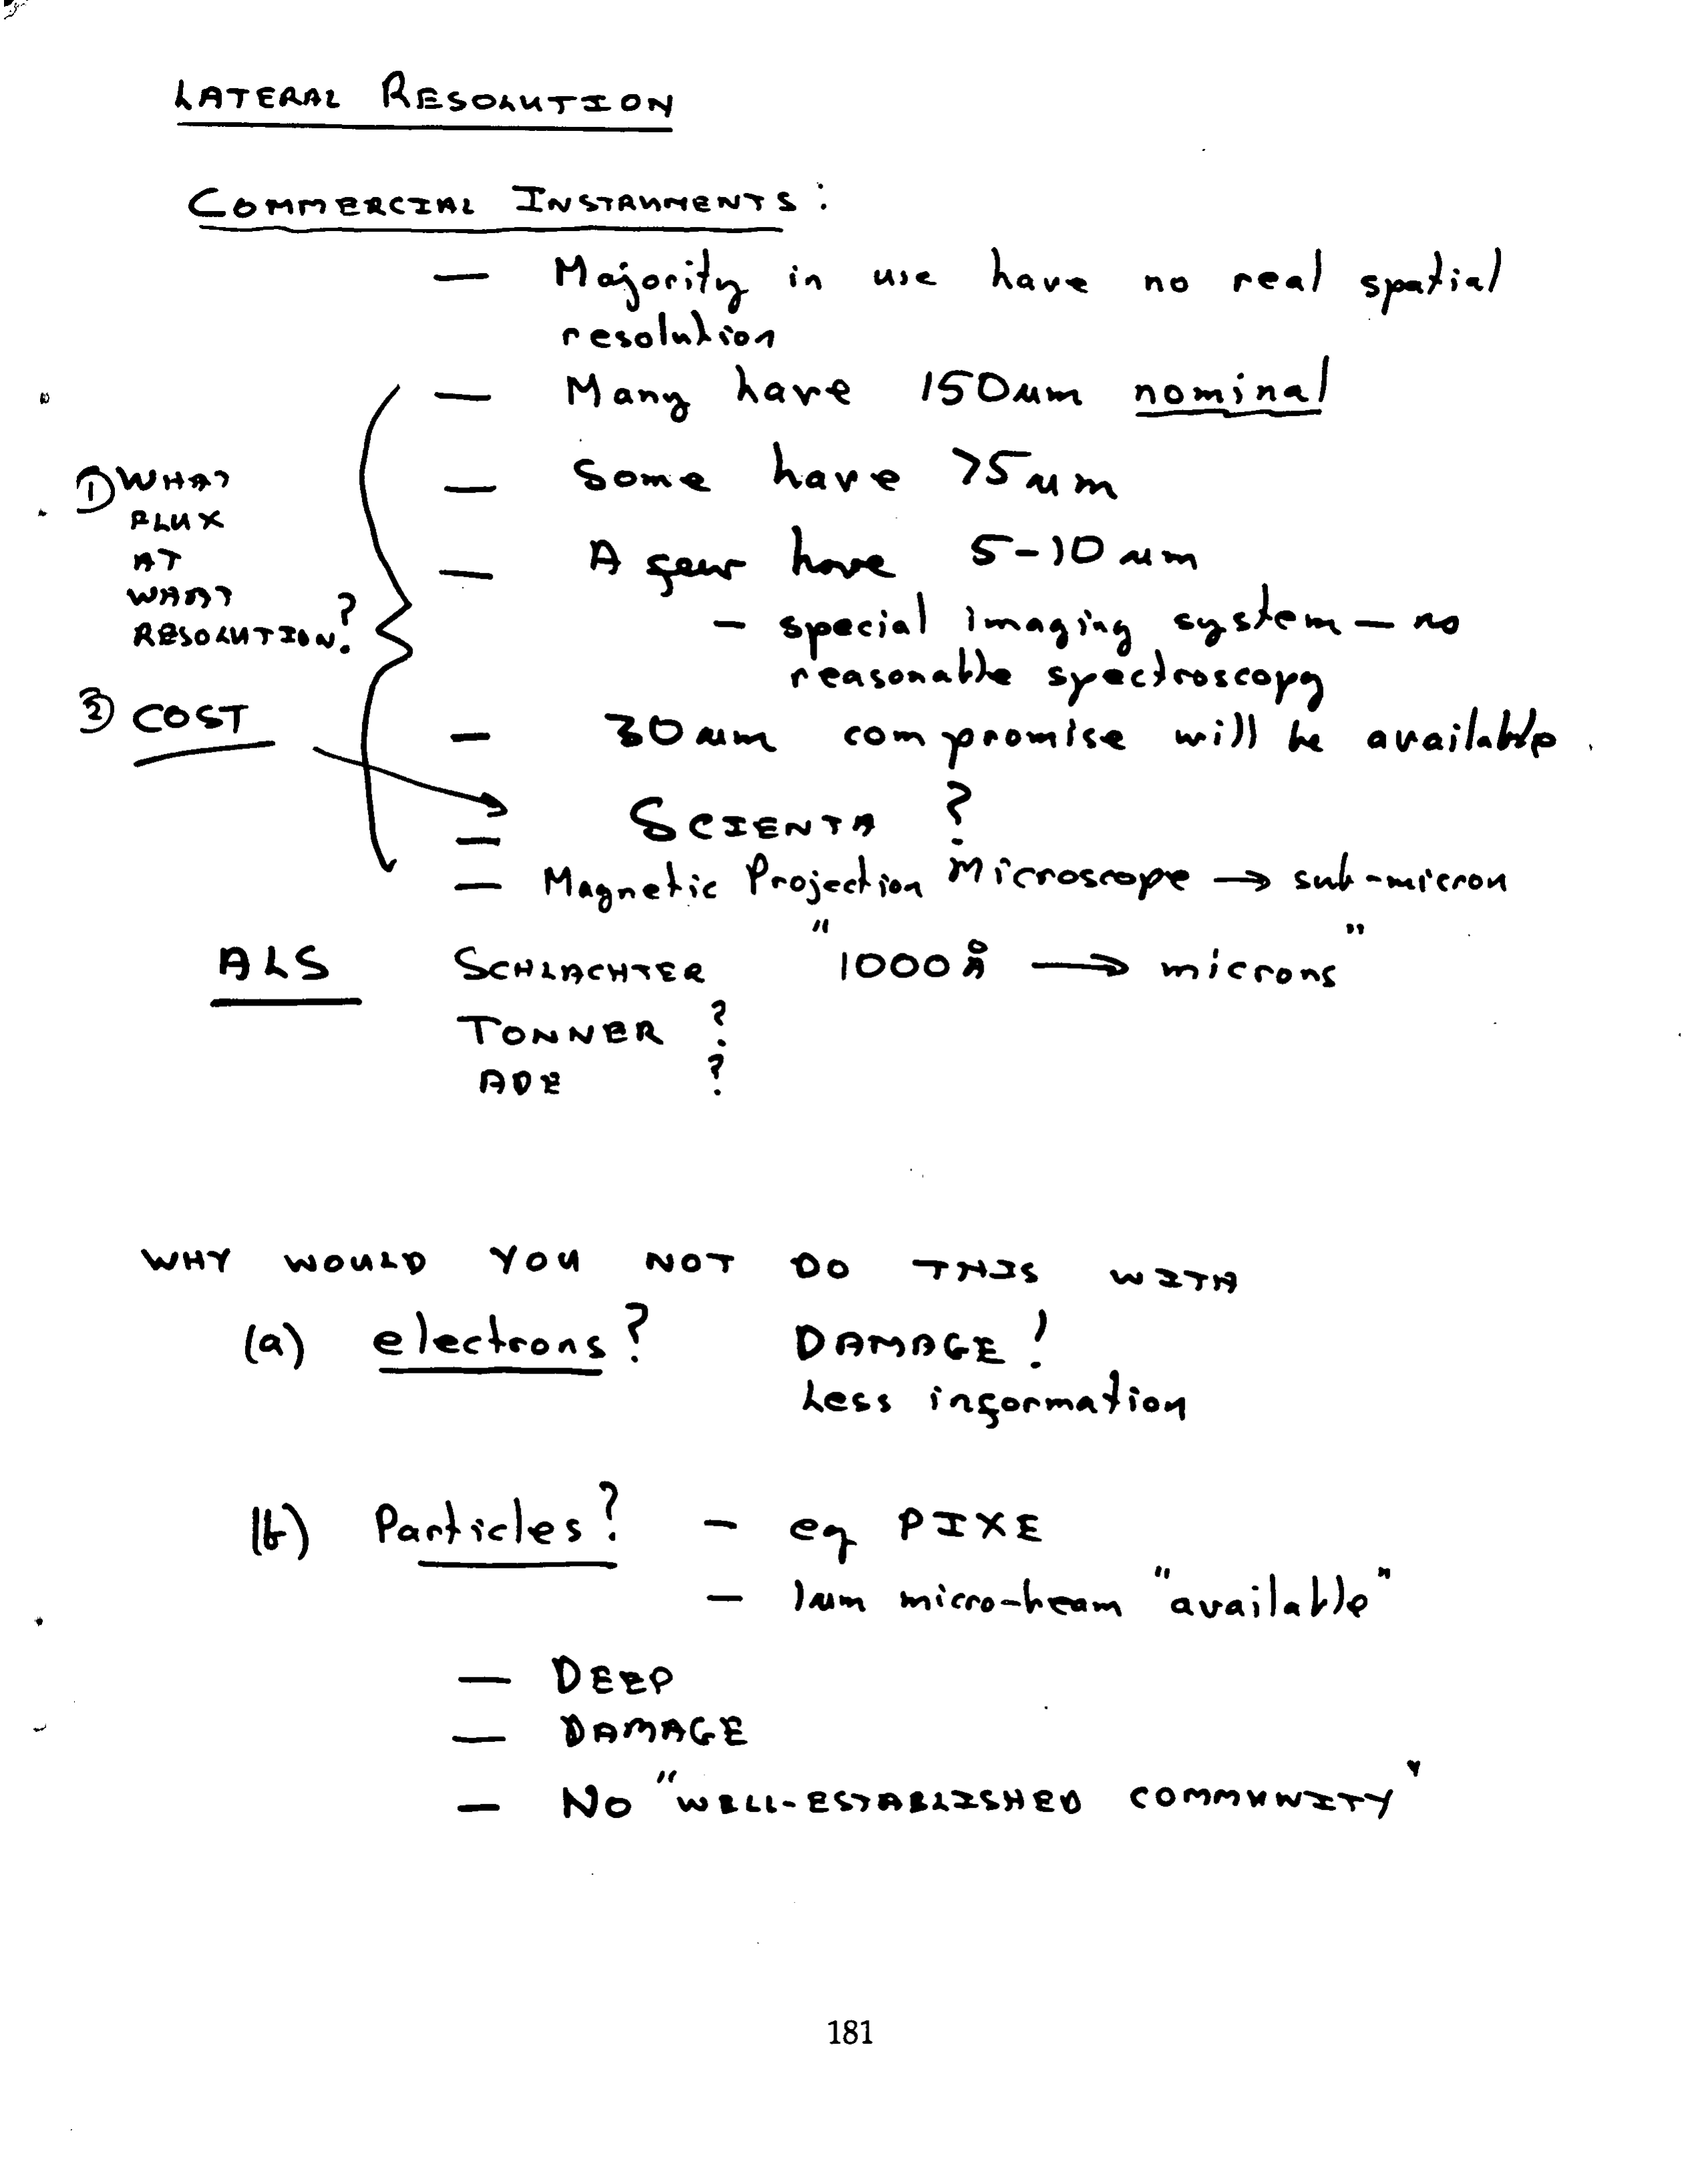 LATERAL RESOLUTION
COMMERCIAL INSTRUMENTS:
— Majority in use have no real spatial
resolution
— Many have 150µm nominal
— Some have 75µm
— A few have 5-10µm
- special imaging system — no
reasonable spectroscopy
— 30µm compromise will be available.
— SCIENTA ?
— Magnetic Projection Microscope → sub-micron
① WHAT
FLUX
AT
WHAT
RESOLUTION?
② COST
ALS SCHLACHTER "1000Å → microns"
TONNER ?
ADE ?
WHY WOULD YOU NOT DO THIS WITH
(a) electrons? DAMAGE!
Less information
(b) Particles? - eg PIXE
- 1µm micro-beam "available"
— DEEP
— DAMAGE
— NO "WELL-ESTABLISHED COMMUNITY"
181